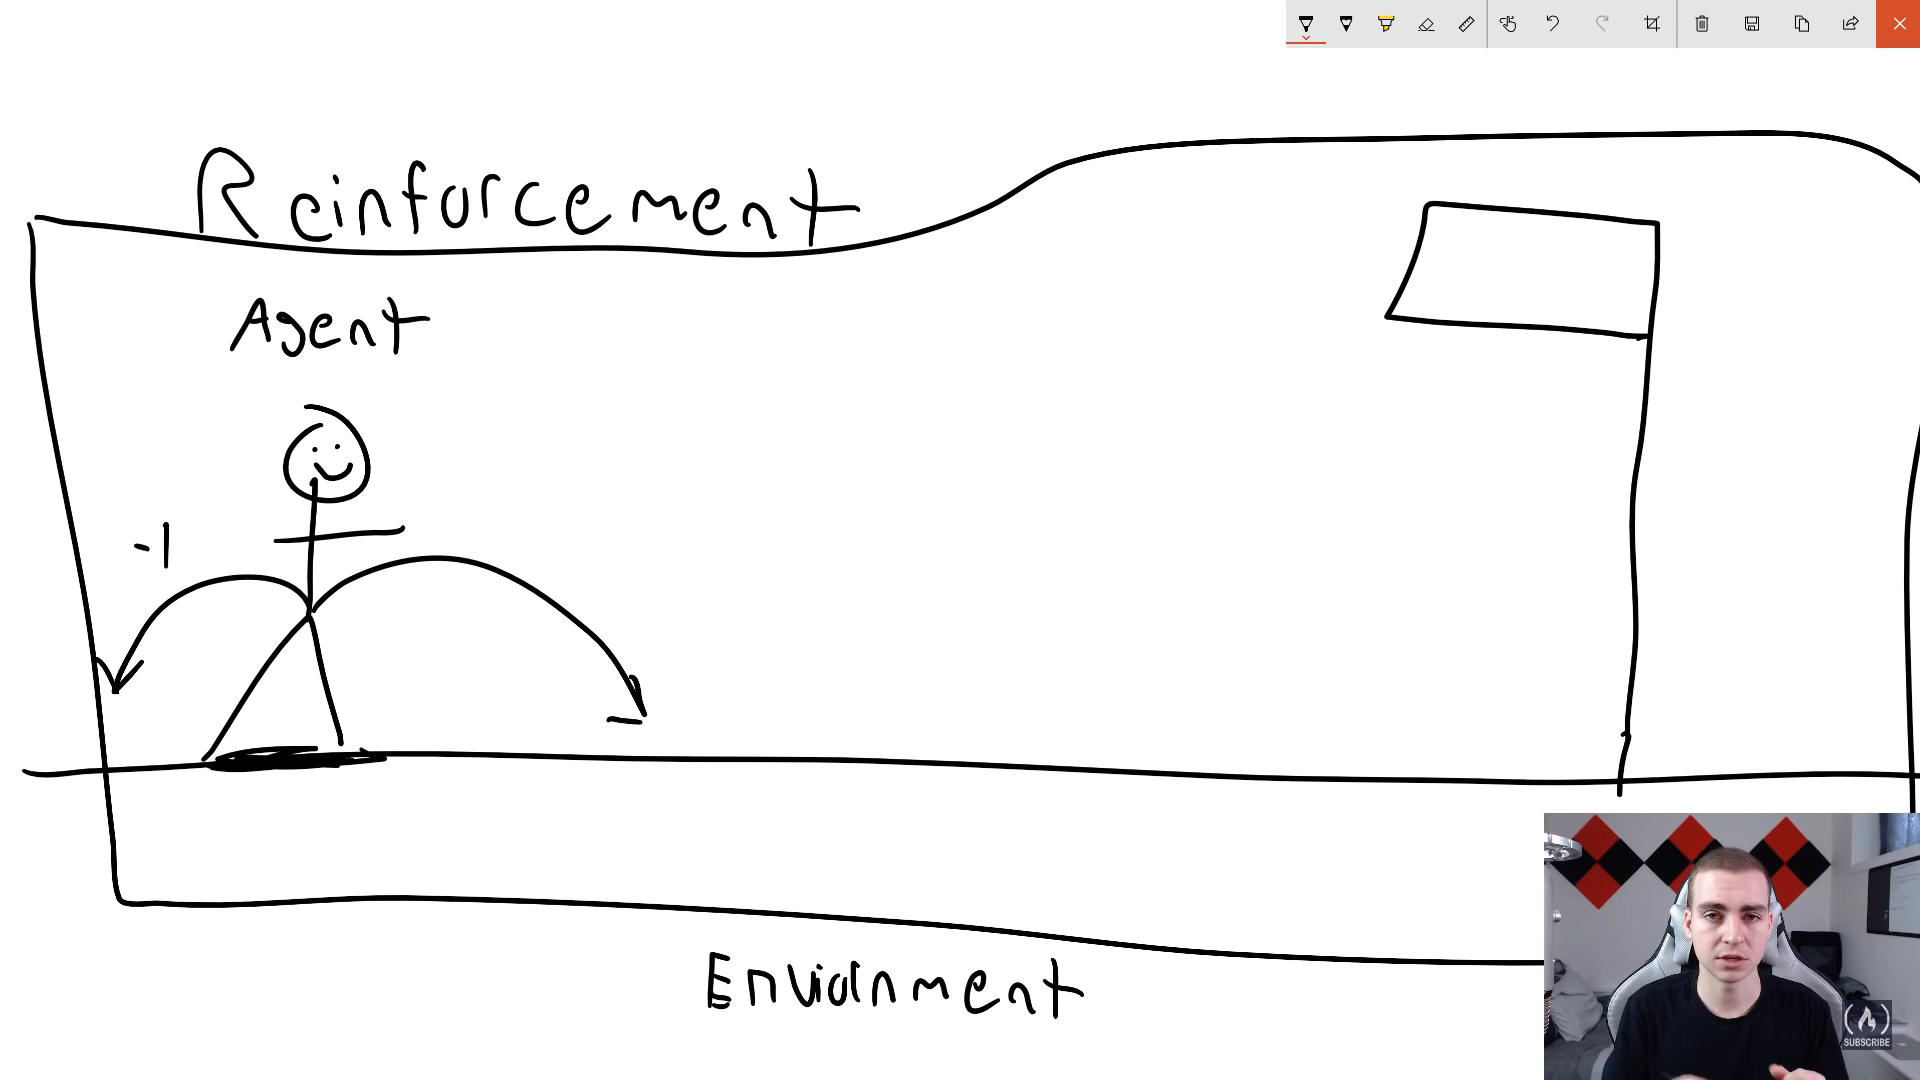 Reinforcement
Agent
-1
Enviornment
SUBSCRIBE